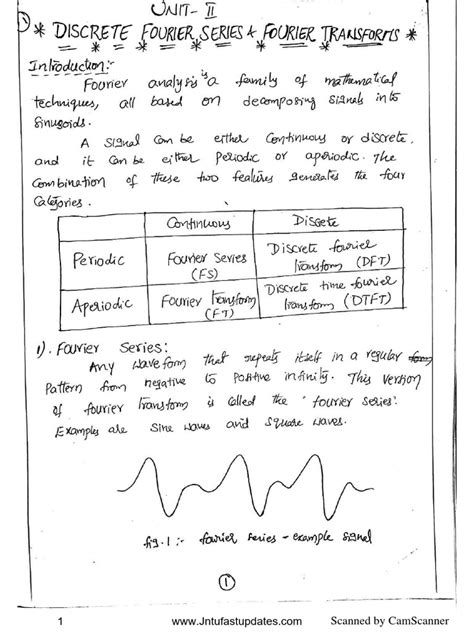 UNIT-II
1
* DISCRETE FOURIER SERIES & FOURIER TRANSFORMS *
Introduction:-
Fourier analysis is a family of mathematical
techniques, all based on decomposing signals into
sinusoids.
A signal can be either continuous or discrete,
and it can be either periodic or aperiodic. The
combination of these two features generates the four
categories.
Continuous Discete
Periodic Fourier Series (FS) Discrete fouriel transform (DFT)
Aperiodic Fourier transform (FT) Discrete time fouriel transform (DTFT)
1). Fourier Series:
Any waveform that repeats itself in a regular form
Pattern from negative to positive infinity. This version
of fourier transform is called the "fourier series".
Examples are sine waves and square waves.
fig.1 :- fourier series - example signal
1
1 www.Jntufastupdates.com Scanned by CamScanner